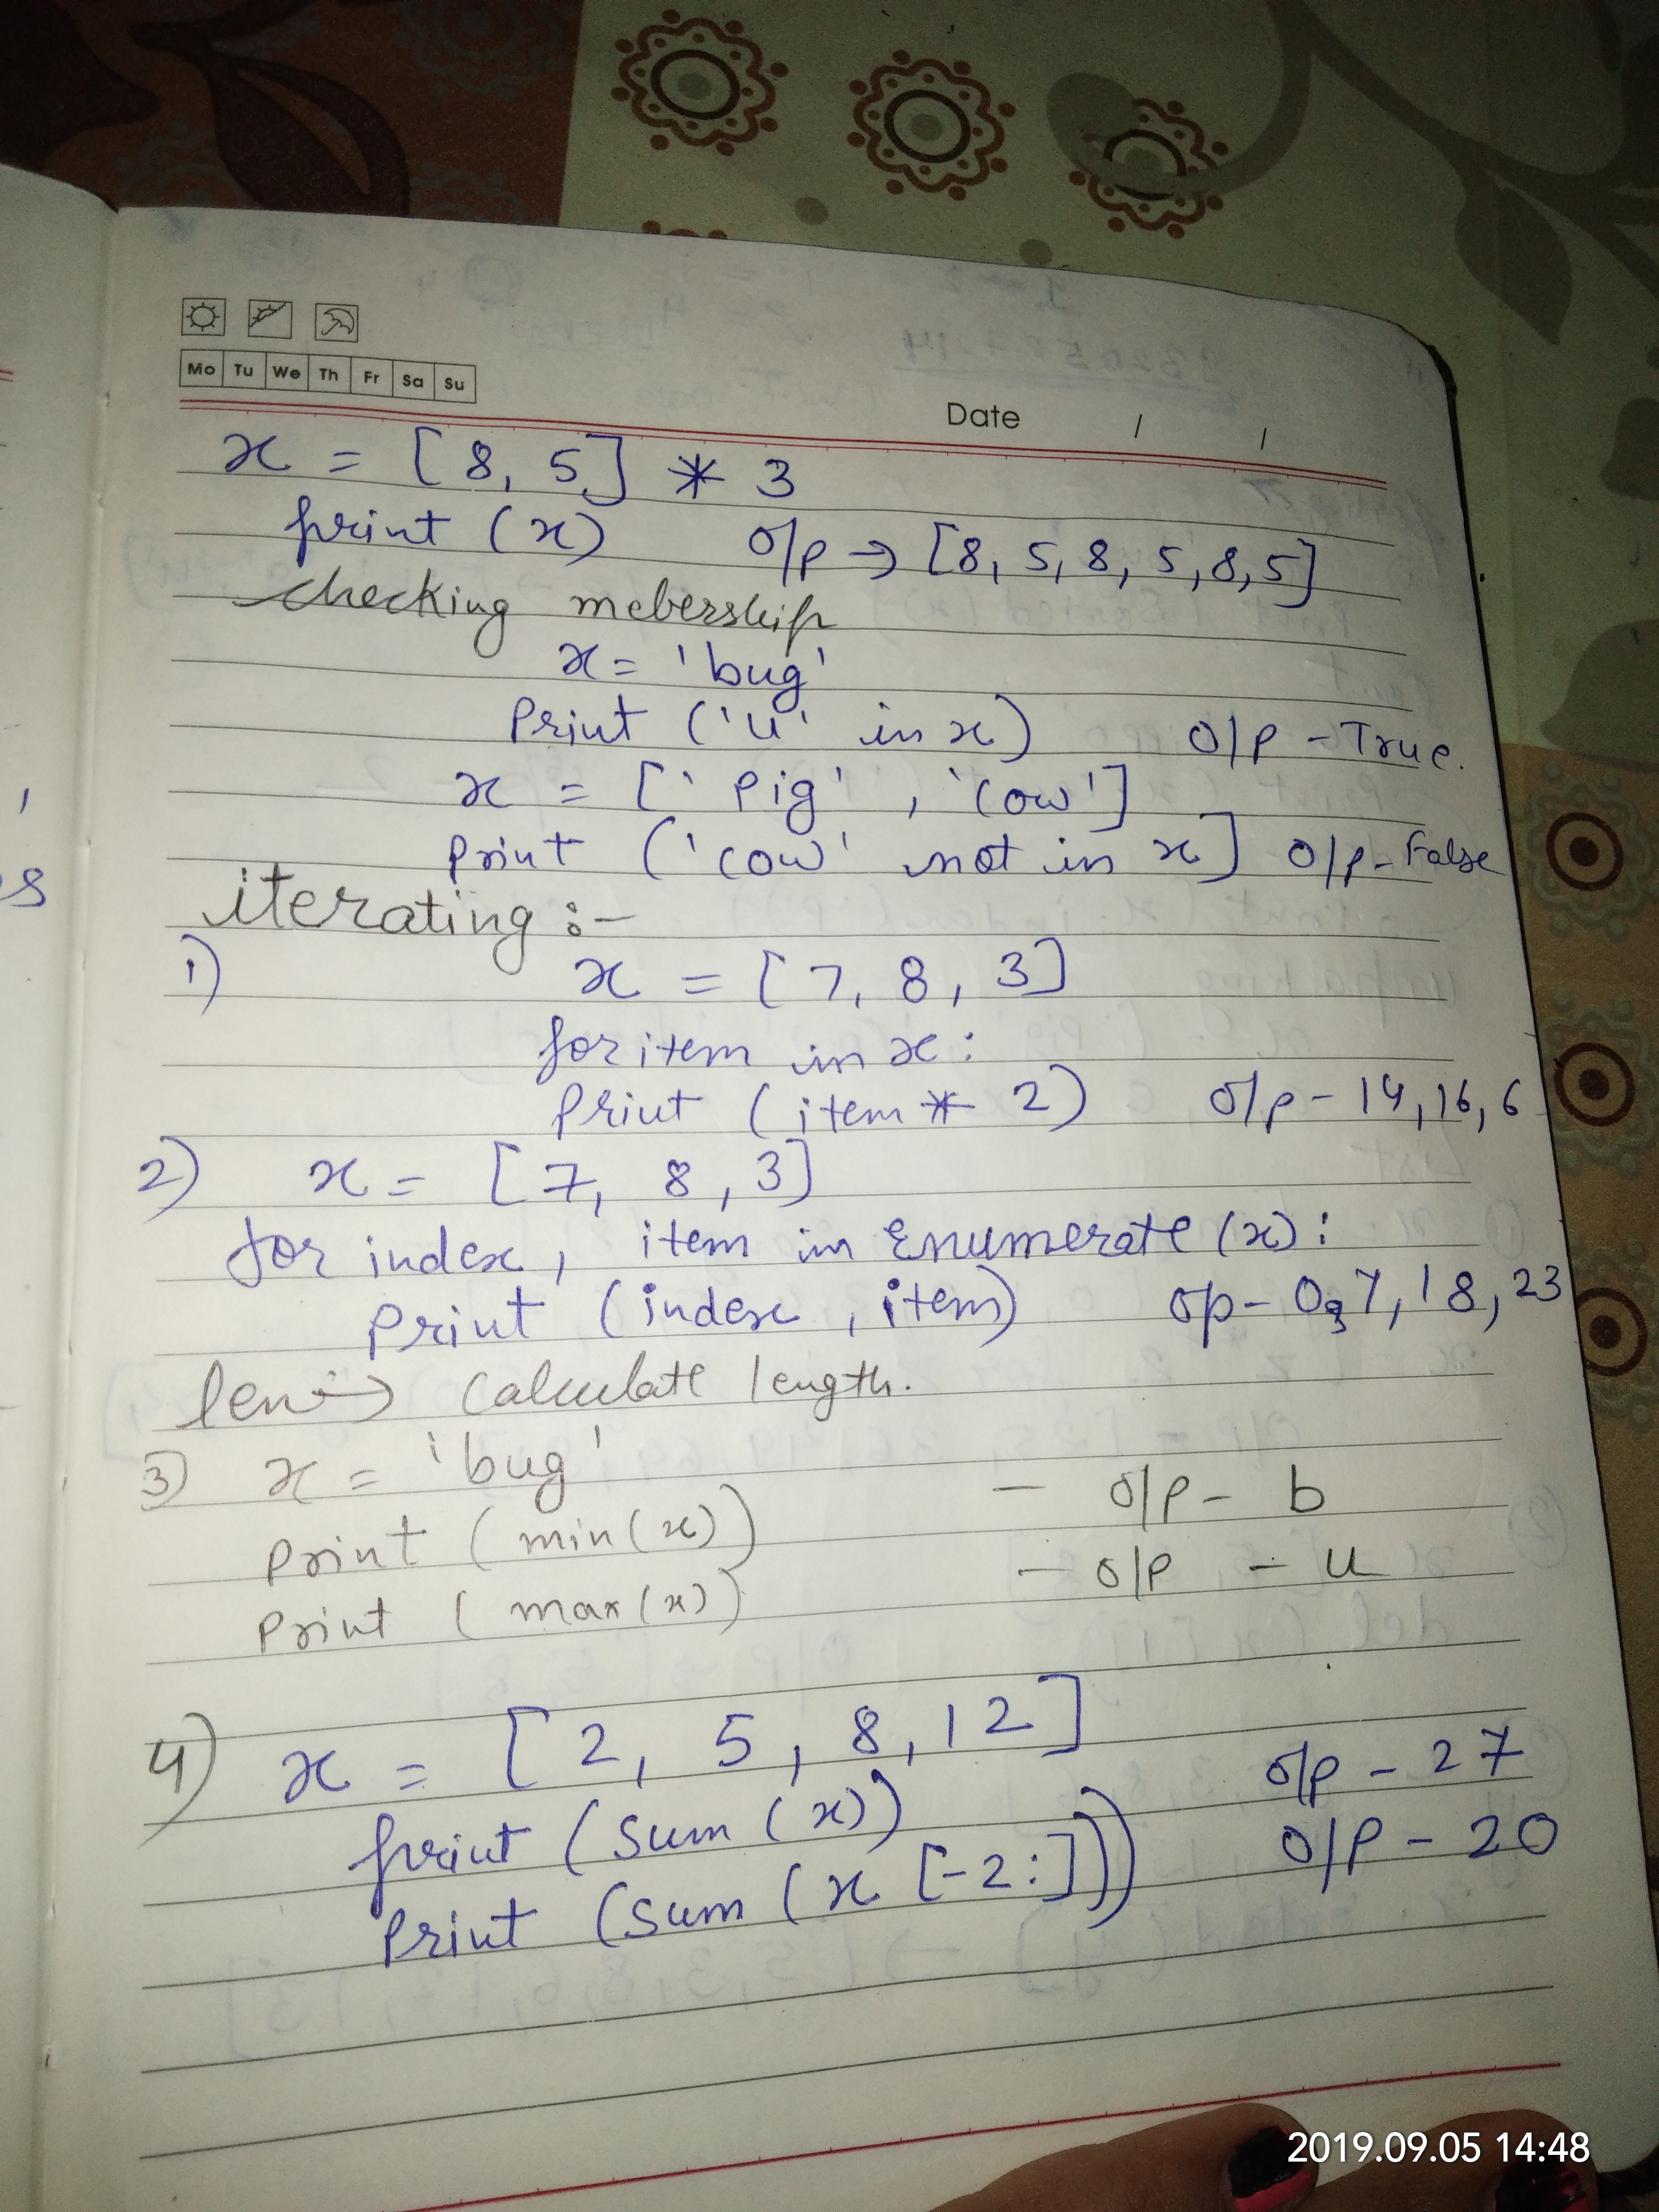 Mo Tu We Th Fr Sa Su
Date / /
x = [8, 5] * 3
print (x) o/p → [8, 5, 8, 5, 8, 5]
checking mebership
x = 'bug'
Print ('u' in x) O/P - True.
x = ['Pig', 'cow']
Print ('cow' not in x] O/p - False
iterating :-
1) x = [7, 8, 3]
for item in x :
Print (item * 2) o/p - 14, 16, 6
2) x = [7, 8, 3]
for index, item in Enumerate (x) :
Print (index, item) o/p - 0,7, 18, 23
len → calculate length.
3) x = 'bug'
Print (min(x)) - o/p - b
Print (max(x)) - o/p - u
4) x = [2, 5, 8, 12]
print (sum (x)) o/p - 27
Print (sum (x [-2:])) O/P - 20
2019.09.05 14:48